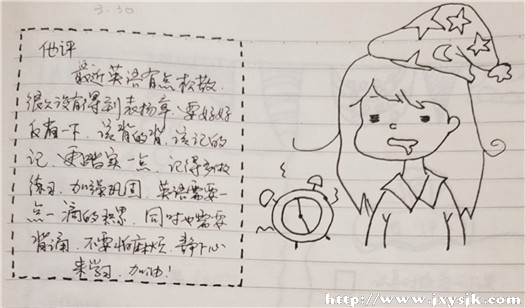 3.30
他评
最近英语有点松散,
很久没有得到表扬章,要好好
反省一下,该背的背,该记的
记,更踏实一点,记得多做
练习,加强巩固,英语需要一
点一滴的积累,同时也需要
背诵,不要怕麻烦,静下心
来学习,加油!
http://www.jxysjk.com